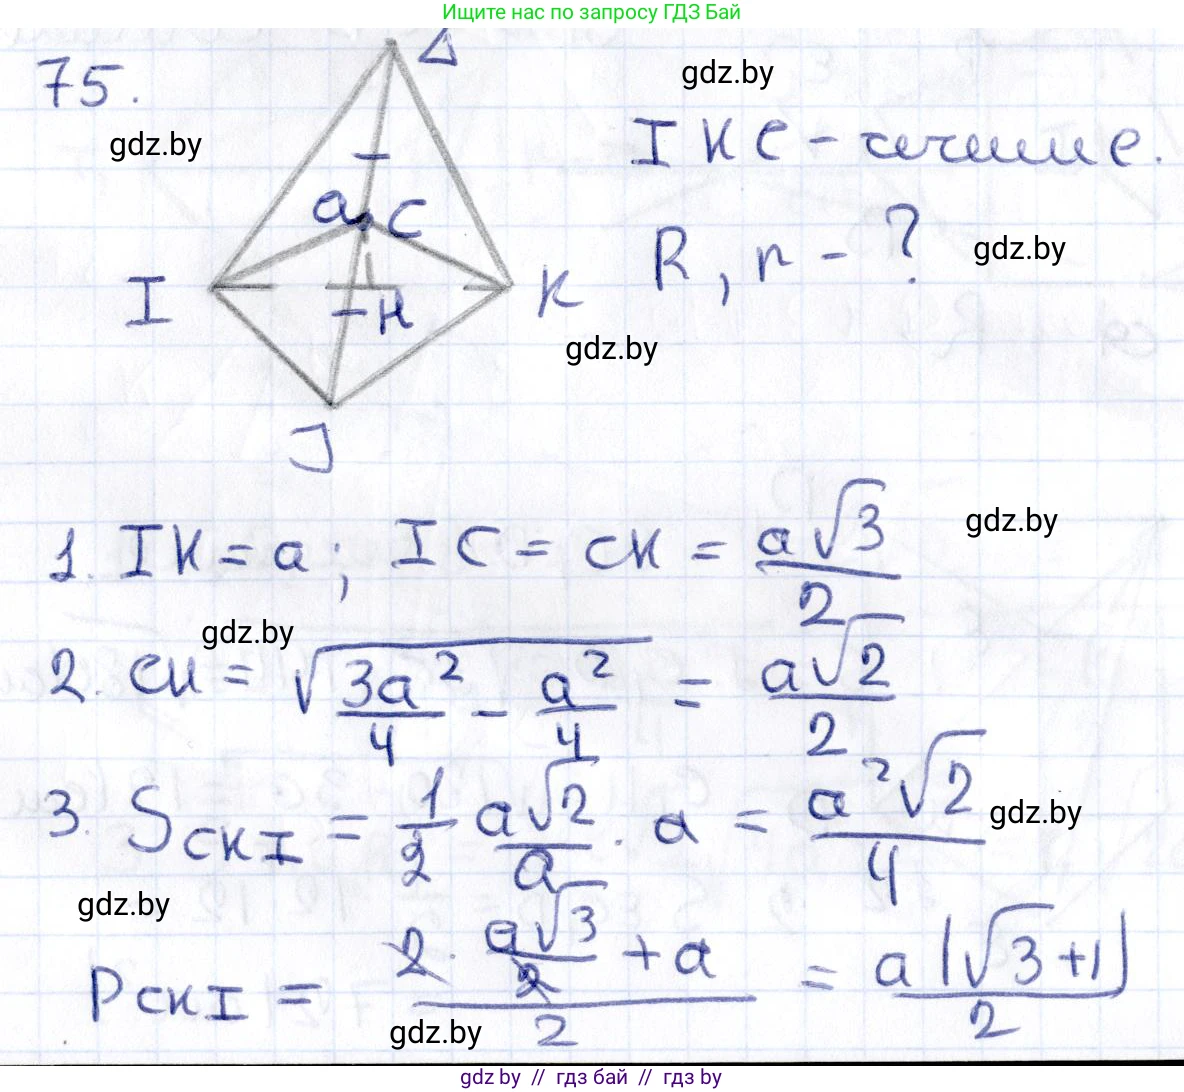 Ищите нас по запросу ГДЗ Бай
75.
Δ
gdz.by
gdz.by
IKC - сечение.
a C
R, r - ?
gdz.by
I
K
H
gdz.by
J
1. IK = a; IC = CK = a√3/2
gdz.by
gdz.by
2. CH = √(3a²/4 - a²/4) = a√2/2
3. S_CKI = 1/2 a√2/a · a = a²√2/4
gdz.by
gdz.by
P_CKI = (2 · a√3/2 + a)/2 = a(√3+1)/2
gdz.by
gdz.by // гдз бай // гдз by